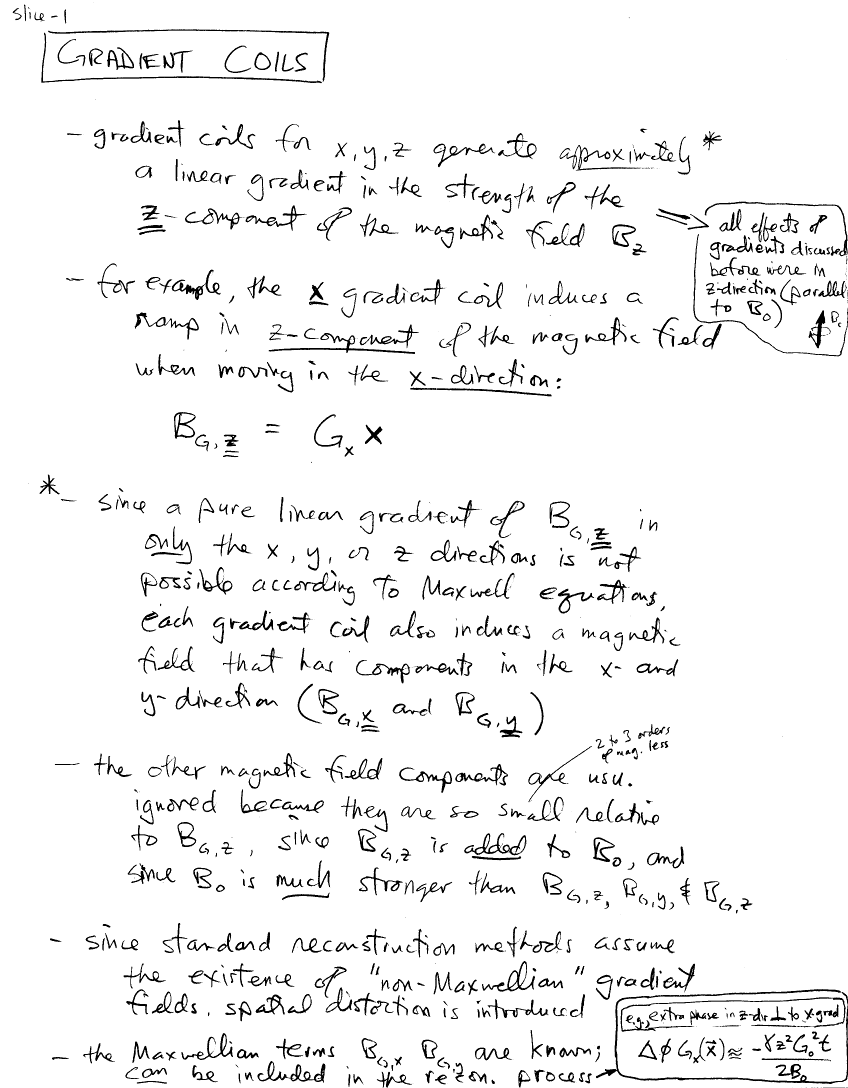 slice-1
GRADIENT COILS
- gradient coils for x, y, z generate approximately *
a linear gradient in the strength of the
z-component of the magnetic field Bz
⇒ all effects of
gradients discussed
before were in
z-direction (parallel
to B₀)
B₀
- for example, the x gradient coil induces a
ramp in z-component of the magnetic field
when moving in the x-direction:
B_G,z = Gₓ x
* - since a pure linear gradient of B_G,z in
only the x, y, or z directions is not
possible according to Maxwell equations,
each gradient coil also induces a magnetic
field that has components in the x- and
y-direction (B_G,x and B_G,y)
2 to 3 orders
of mag. less
- the other magnetic field components are usu.
ignored because they are so small relative
to B_G,z, since B_G,z is added to B₀, and
since B₀ is much stronger than B_G,z, B_G,y, & B_G,z
- since standard reconstruction methods assume
the existence of "non-Maxwellian" gradient
fields, spatial distortion is introduced
- the Maxwellian terms B_G,x B_G,y are known;
can be included in the recon. process →
e.g., extra phase in z-dir ⊥ to x-grad
Δφ Gₓ(x⃗) ≈ -γz²G₀²t / 2B₀